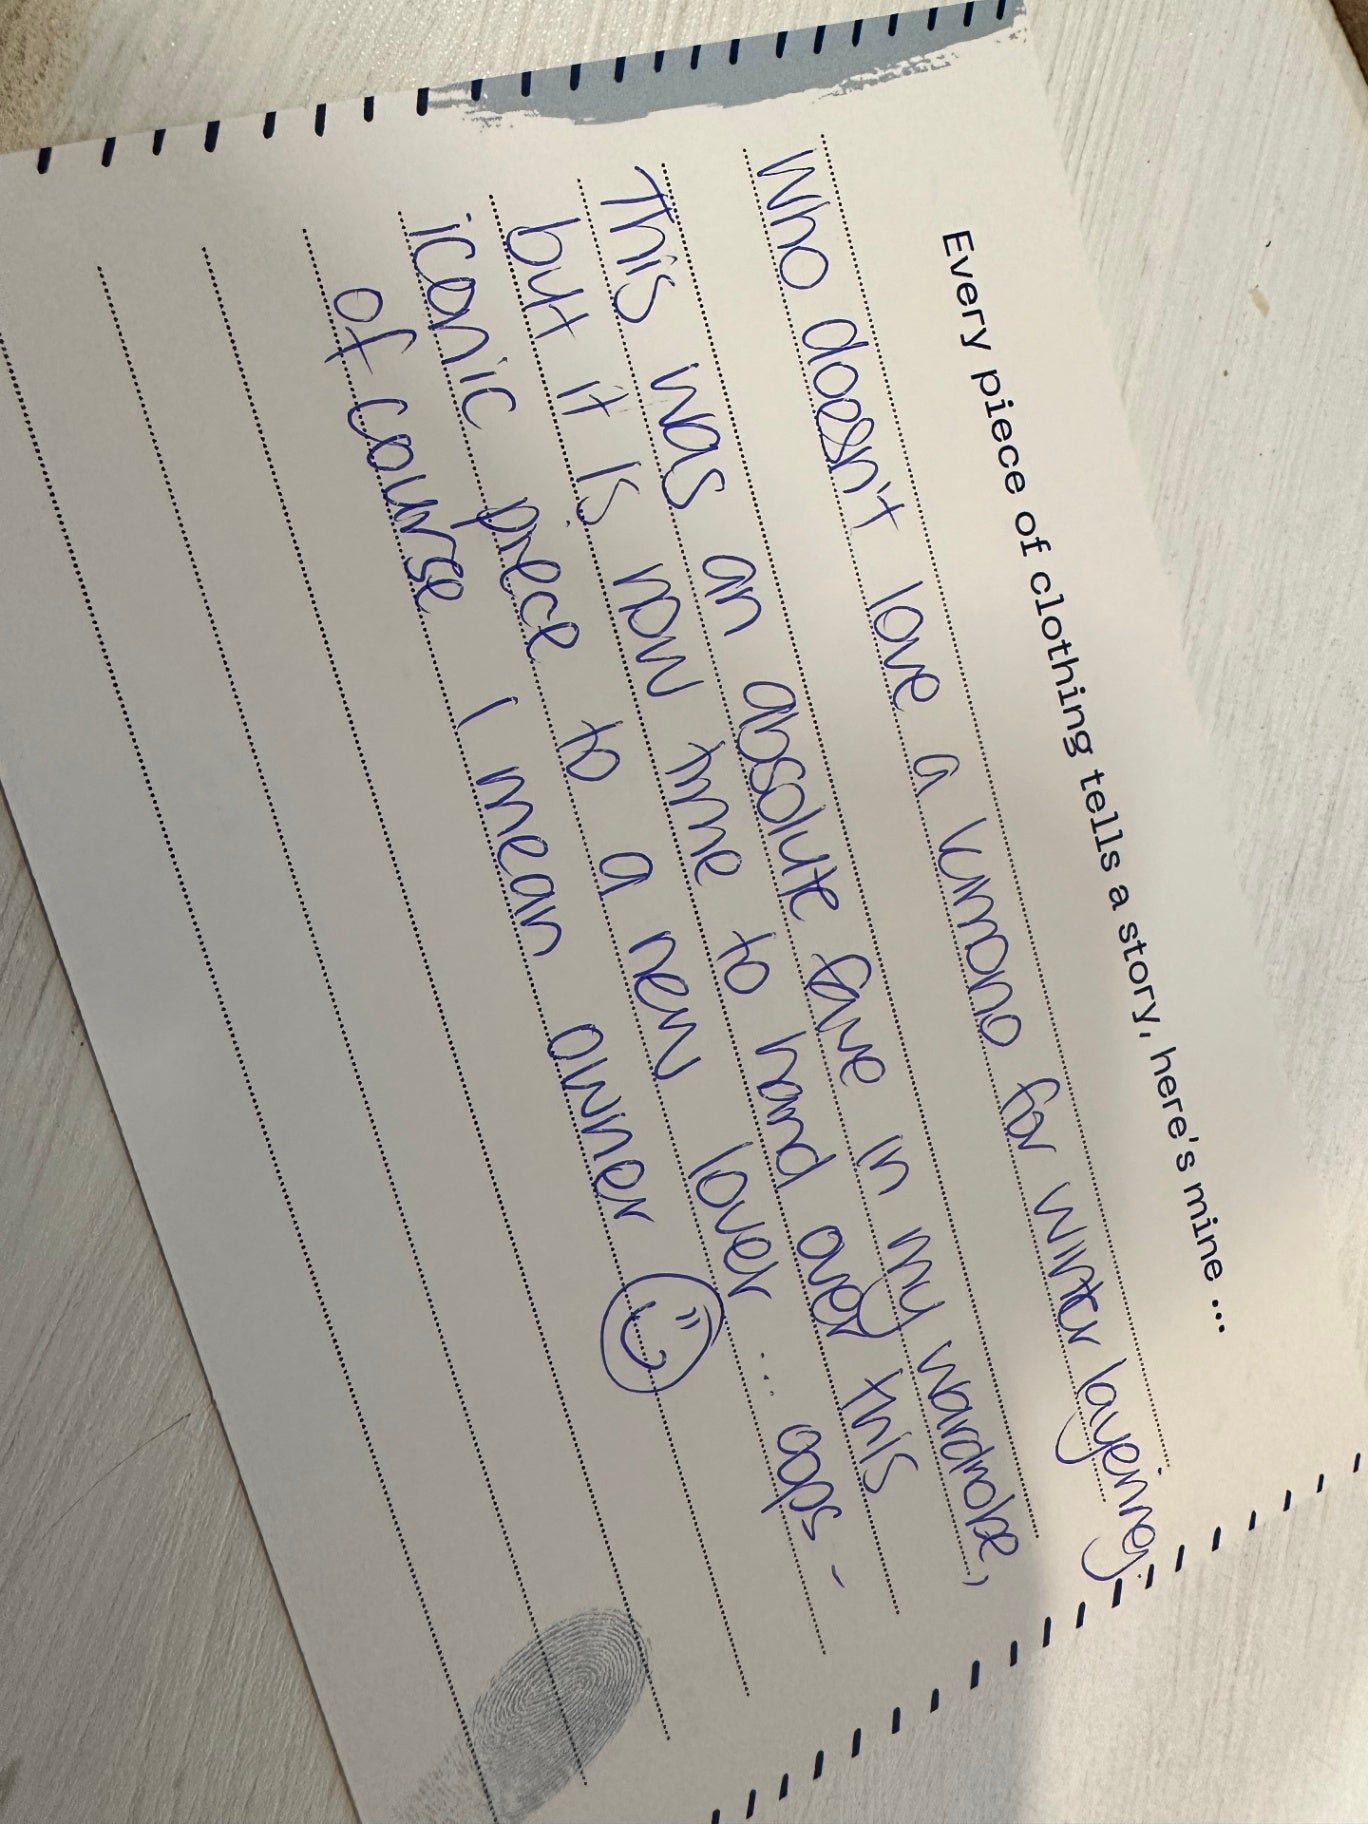 Every piece of clothing tells a story, here's mine ...
Who doesn't love a kimono for winter layering.
This was an absolute fave in my wardrobe,
but it is now time to hand over this
iconic piece to a new lover ... oops -
of course I mean owner